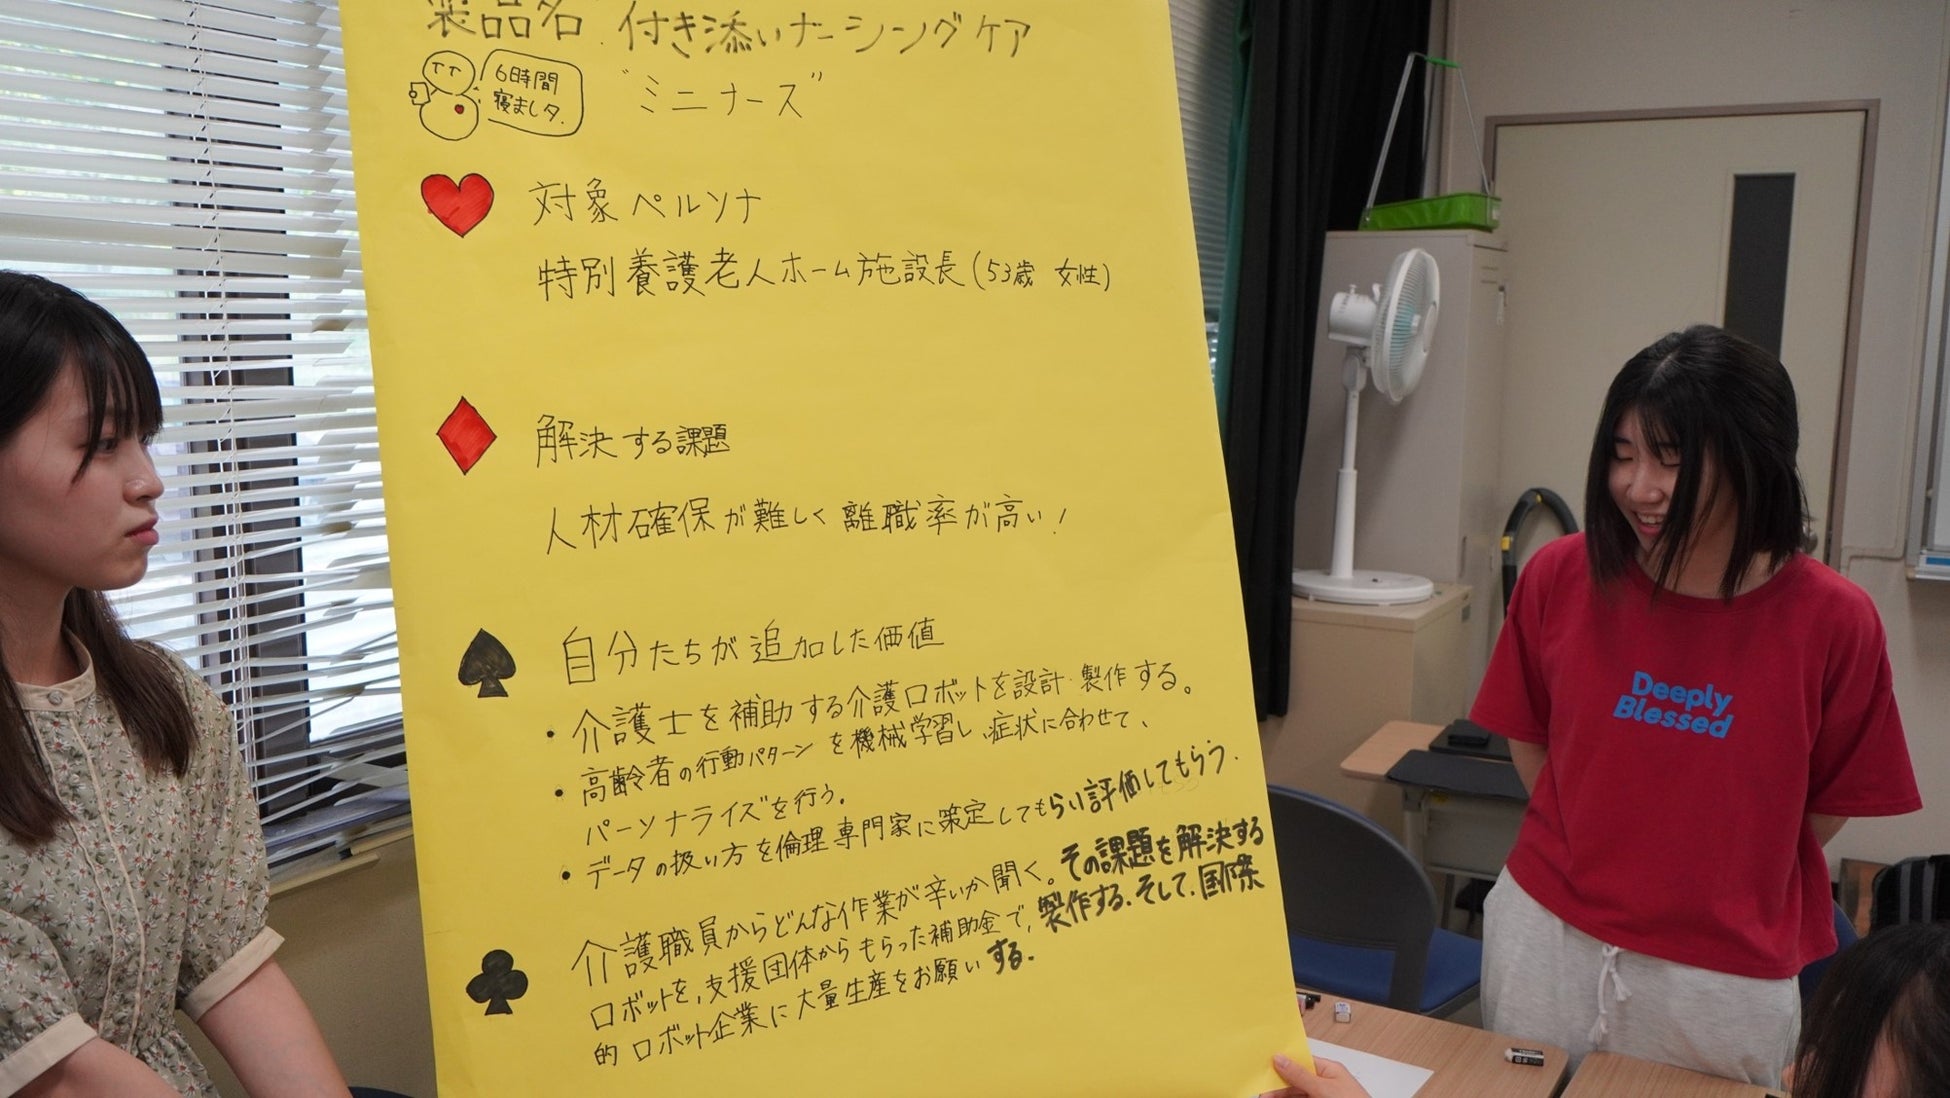 製品名 付き添いナーシングケア
6時間
寝ましタ.
"ミニナース"
対象ペルソナ
特別養護老人ホーム施設長(53歳 女性)
解決する課題
人材確保が難しく離職率が高い!
自分たちが追加した価値
・介護士を補助する介護ロボットを設計・製作する。
・高齢者の行動パターンを機械学習し、症状に合わせて、
パーソナライズを行う。
・データの扱い方を倫理専門家に策定してもらい評価してもらう.
介護職員からどんな作業が辛いか聞く。その課題を解決する
ロボットを,支援団体からもらった補助金で,製作する.そして.国際
的ロボット企業に大量生産をお願いする.
Deeply
Blessed